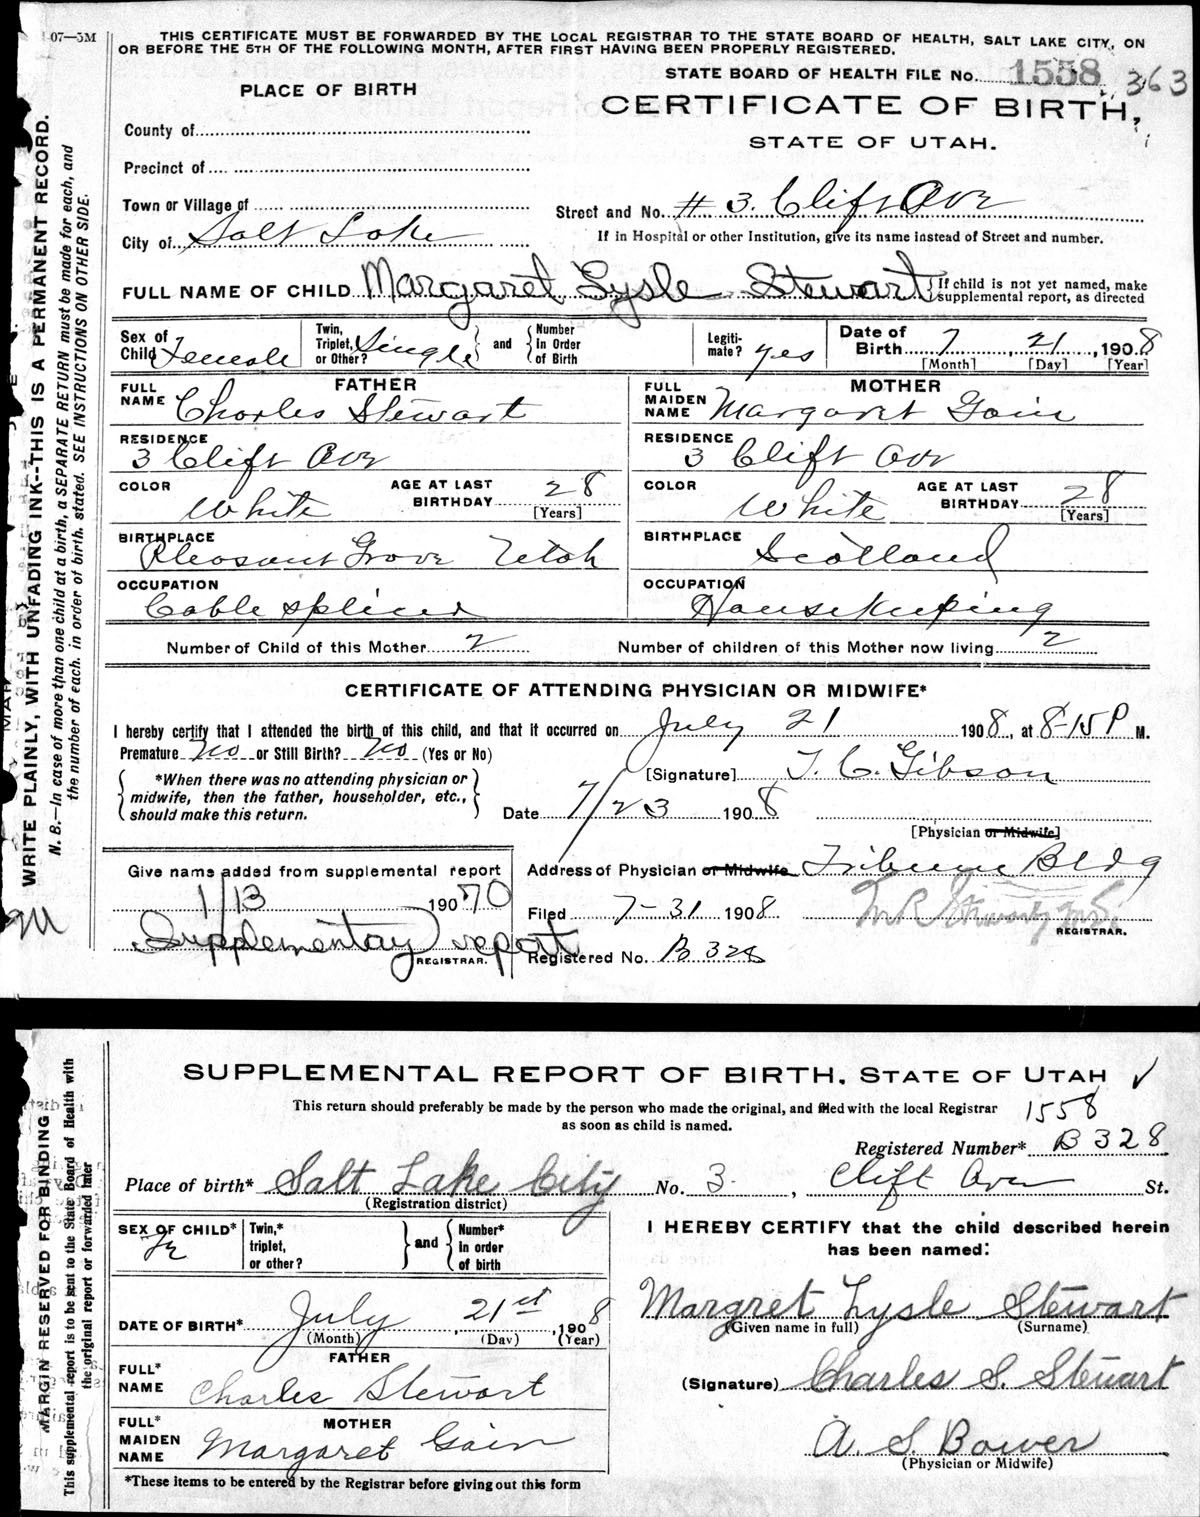 1-07—5M
THIS CERTIFICATE MUST BE FORWARDED BY THE LOCAL REGISTRAR TO THE STATE BOARD OF HEALTH, SALT LAKE CITY, ON
OR BEFORE THE 5TH OF THE FOLLOWING MONTH, AFTER FIRST HAVING BEEN PROPERLY REGISTERED.
STATE BOARD OF HEALTH FILE No. 1558 363
PLACE OF BIRTH
CERTIFICATE OF BIRTH,
STATE OF UTAH.
County of
Precinct of
Town or Village of
Street and No. # 3. Clift Ave
City of Salt Lake
If in Hospital or other Institution, give its name instead of Street and number.
FULL NAME OF CHILD Margaret Lysle Stewart { If child is not yet named, make supplemental report, as directed
Sex of Child Female Twin, Triplet, or Other? Single } and { Number In Order of Birth Legiti-mate? yes Date of Birth 7, 21, 1908
[Month] [Day] [Year]
FATHER
FULL NAME Charles Stewart
MOTHER
FULL MAIDEN NAME Margaret Gain
RESIDENCE 3 Clift Ave
RESIDENCE 3 Clift Ave
COLOR White AGE AT LAST BIRTHDAY 28 [Years]
COLOR White AGE AT LAST BIRTHDAY 28 [Years]
BIRTHPLACE Pleasant Grove Utah
BIRTHPLACE Scotland
OCCUPATION Cable splicer
OCCUPATION Housekeeping
Number of Child of this Mother 2
Number of children of this Mother now living 2
CERTIFICATE OF ATTENDING PHYSICIAN OR MIDWIFE*
I hereby certify that I attended the birth of this child, and that it occurred on July 21 1908, at 8-15 P M.
Premature No or Still Birth? No (Yes or No)
{ *When there was no attending physician or midwife, then the father, householder, etc., should make this return. }
[Signature] T. C. Gibson
Date 7/23 1908
[Physician or Midwife]
Give name added from supplemental report
Address of Physician or Midwife Tribune Bldg
1/13 19070
Filed 7-31 1908
REGISTRAR.
Supplementary report
REGISTRAR.
Registered No. B 328
WRITE PLAINLY, WITH UNFADING INK--THIS IS A PERMANENT RECORD.
N. B.—In case of more than one child at a birth, a SEPARATE RETURN must be made for each, and
the number of each, in order of birth, stated. SEE INSTRUCTIONS ON OTHER SIDE.
SUPPLEMENTAL REPORT OF BIRTH. STATE OF UTAH ✓
This return should preferably be made by the person who made the original, and filed with the local Registrar
as soon as child is named.
1558
Registered Number* B 328
Place of birth* Salt Lake City No. 3, Clift Ave St.
(Registration district)
SEX OF CHILD* Twin,* triplet, or other? } and { Number* In order of birth
I HEREBY CERTIFY that the child described herein
has been named:
DATE OF BIRTH* July, 21st, 1908
(Month) (Day) (Year)
Margret Lysle Stewart
(Given name in full) (Surname)
FATHER
FULL* NAME Charles Stewart
(Signature) Charles S. Stewart
MOTHER
FULL* MAIDEN NAME Margaret Gain
A. S. Bower
(Physician or Midwife)
*These items to be entered by the Registrar before giving out this form
MARGIN RESERVED FOR BINDING
This supplemental report is to be sent to the State Board of Health with
the original report or forwarded later